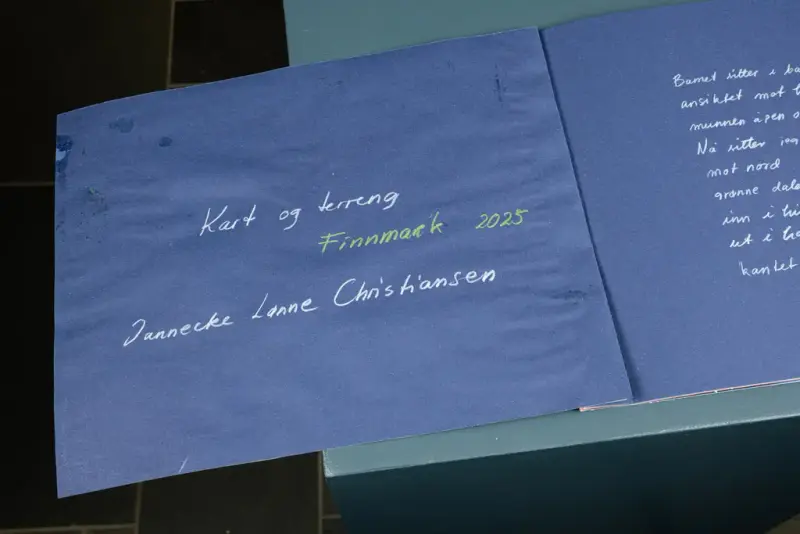 Kart og terreng
Finnmark 2025
Jannecke Lønne Christiansen
Barnet sitter i
ansiktet mot
munnen åpen
Nå sitter jeg
mot nord
grønne
inn i
ut i
kantet